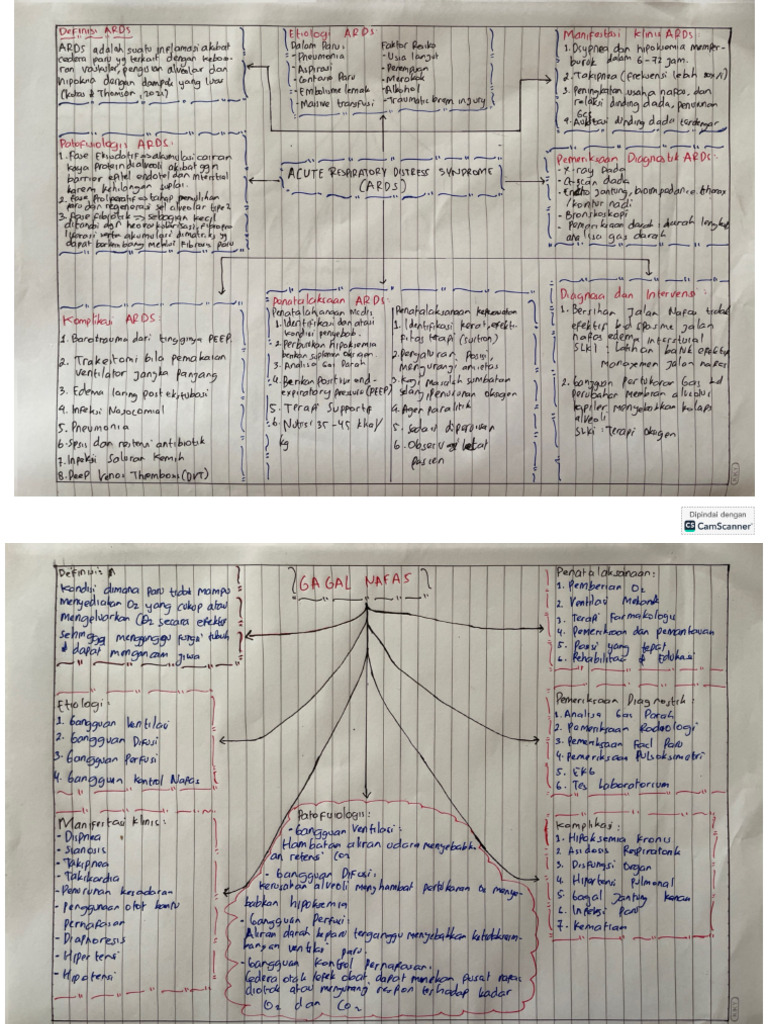 Definisi ARDS
ARDS adalah suatu inflamasi akibat
cedera paru yg terkait dengan kebocoran
vaskular, pengisian alveolar dan
hipoksia dengan dampak yang luas
Etiologi ARDS
Dalam Paru:
- Pneumonia
- Aspirasi
- Contusio Paru
- Embolisme lemak
- Massive transfusi
Faktor Resiko
- Usia lanjut
- Perempuan
- Merokok
- Alkohol
- Traumatic brain injury
Manifestasi Klinis ARDS:
1. Dsypnea dan hipoksemia memper-
buruk dalam 6-72 jam.
2. Takipnea (frekuensi lebih
3. Peningkatan usaha napas, dan
retaksi dinding dada, penurunan
4. Auskultasi dinding dada terdengar
Patofisiologis ARDS:
1. Fase Eksudatif => akumulasi cairan
kaya protein dialveoli akibat ggn
barrier epitel endotel dan interstial
karena kehilangan suplai.
2. Fase Proliperatif => tahap pemulihan
paru dan regenerasi sel alveolar tipe 2
3. Fase fibrotik => sebagian kecil
ditandai dan
akumulasi dimatriks yg
dapat berkembang menjadi Fibrosis Paru
ACUTE RESPIRATORY DISTRESS SYNDROME
(ARDS)
Pemeriksaan Diagnostik ARDS:
- X-ray Dada
- Ct scan dada
jantung, bioimpadance thorax
/kontur nadi
- Bronskoskopi
- Pemeriksaan darah: darah lengkap
analisa gas darah
Komplikasi ARDS:
1. Barotrauma dari tingginya PEEP.
2. Trakeitomi bila pemakaian
ventilator jangka panjang
3. Edema laring post ekstubasi
4. Infeksi Nasocomial
5. Pneumonia
6. Spsis dan resitensi antibiotik
7. Infeksi Saluran Kemih
8. Deep Venos Thrombosis (DVT)
Penatalaksaan ARDS:
Penatalaksanaan Medis
1. Identifikasi dan atasi
kondisi penyebab.
2. Perburukan hipoksemia
berikan suplemen oksigen.
3. Analisa Gas Darah
4. Berikan Positive end-
expiratory pressure (PEEP)
5. Terapi Supportif
6. Nutrisi 35-45 kkal/
kg
Penatalaksanaan keperawatan
1. Identifikasi keefekti-
fitas terapi (suction)
2. Pengaturan Posisi,
mengurangi ansietas
3. Kaji masalah sumbatan
selang, penurunan oksigen
4. Agen Paralitik
5. Sedasi diperlukan
6. Observasi ketat
pasien
Diagnosa dan Intervensi:
1. Bersihan Jalan Napas tidak
efektif b.d spasme jalan
napas edema interstisial
SLKI: Latihan batuk efektif
Manajemen jalan napas
2. Gangguan Pertukaran Gas bd
perubahan membran alveolus
kapiler menyebabkan kolaps
alveoli
SLKI: Terapi Oksigen
Dipindai dengan
CS CamScanner
GAGAL NAFAS
Definisi:
Kondisi dimana paru tidak mampu
menyediakan O2 yang cukup atau
mengeluarkan CO2 secara efektif
sehingga mengganggu fungsi tubuh
& dapat mengancam jiwa
Penatalaksanaan:
1. Pemberian O2
2. Ventilasi Mekanik
3. Terapi Farmakologis
4. Pemeriksaan dan pemantauan
5. Posisi yang tepat
6. Rehabilitasi & Edukasi
Etiologi:
1. Gangguan Ventilasi
2. Gangguan Difusi
3. Gangguan Perfusi
4. Gangguan Kontrol Napas
Pemeriksaan Diagnostik:
1. Analisa Gas Darah
2. Pemeriksaan Radiologi
3. Pemeriksaan Faal Paru
4. Pemeriksaan Pulsoksimetri
5. EKG
6. Tes Laboratorium
Manifestasi Klinis:
- Dispnea
- Sianosis
- Takipnea
- Takikardia
- Penurunan kesadaran
- Penggunaan otot bantu
pernapasan
- Diaphoresis
- Hipertensi
- Hipotensi
Patofisiologis:
- Gangguan Ventilasi:
Hambatan aliran udara menyebabk-
an retensi CO2
- Gangguan Difusi:
Kerusakan alveoli menghambat pertukaran O2 menye-
babkan hipoksemia
- Gangguan Perfusi:
Aliran darah keparu terganggu menyebabkan ketidakseim-
bangan ventilasi paru.
- Gangguan kontrol pernapasan.
Cedera otak /efek obat dapat menekan pusat napas
diotak atau mengurangi respon terhadap kadar
O2 dan CO2
Komplikasi:
1. Hipoksemia Kronis
2. Asidosis Respiratorik
3. Disfungsi Organ
4. Hipertensi Pulmonal
5. Gagal Jantung kanan
6. Infeksi Paru
7. Kematian